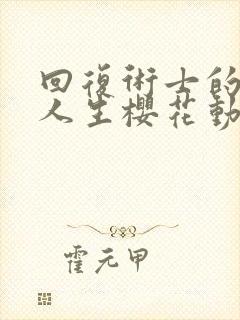 回復術士的
人生櫻花動
霍元甲